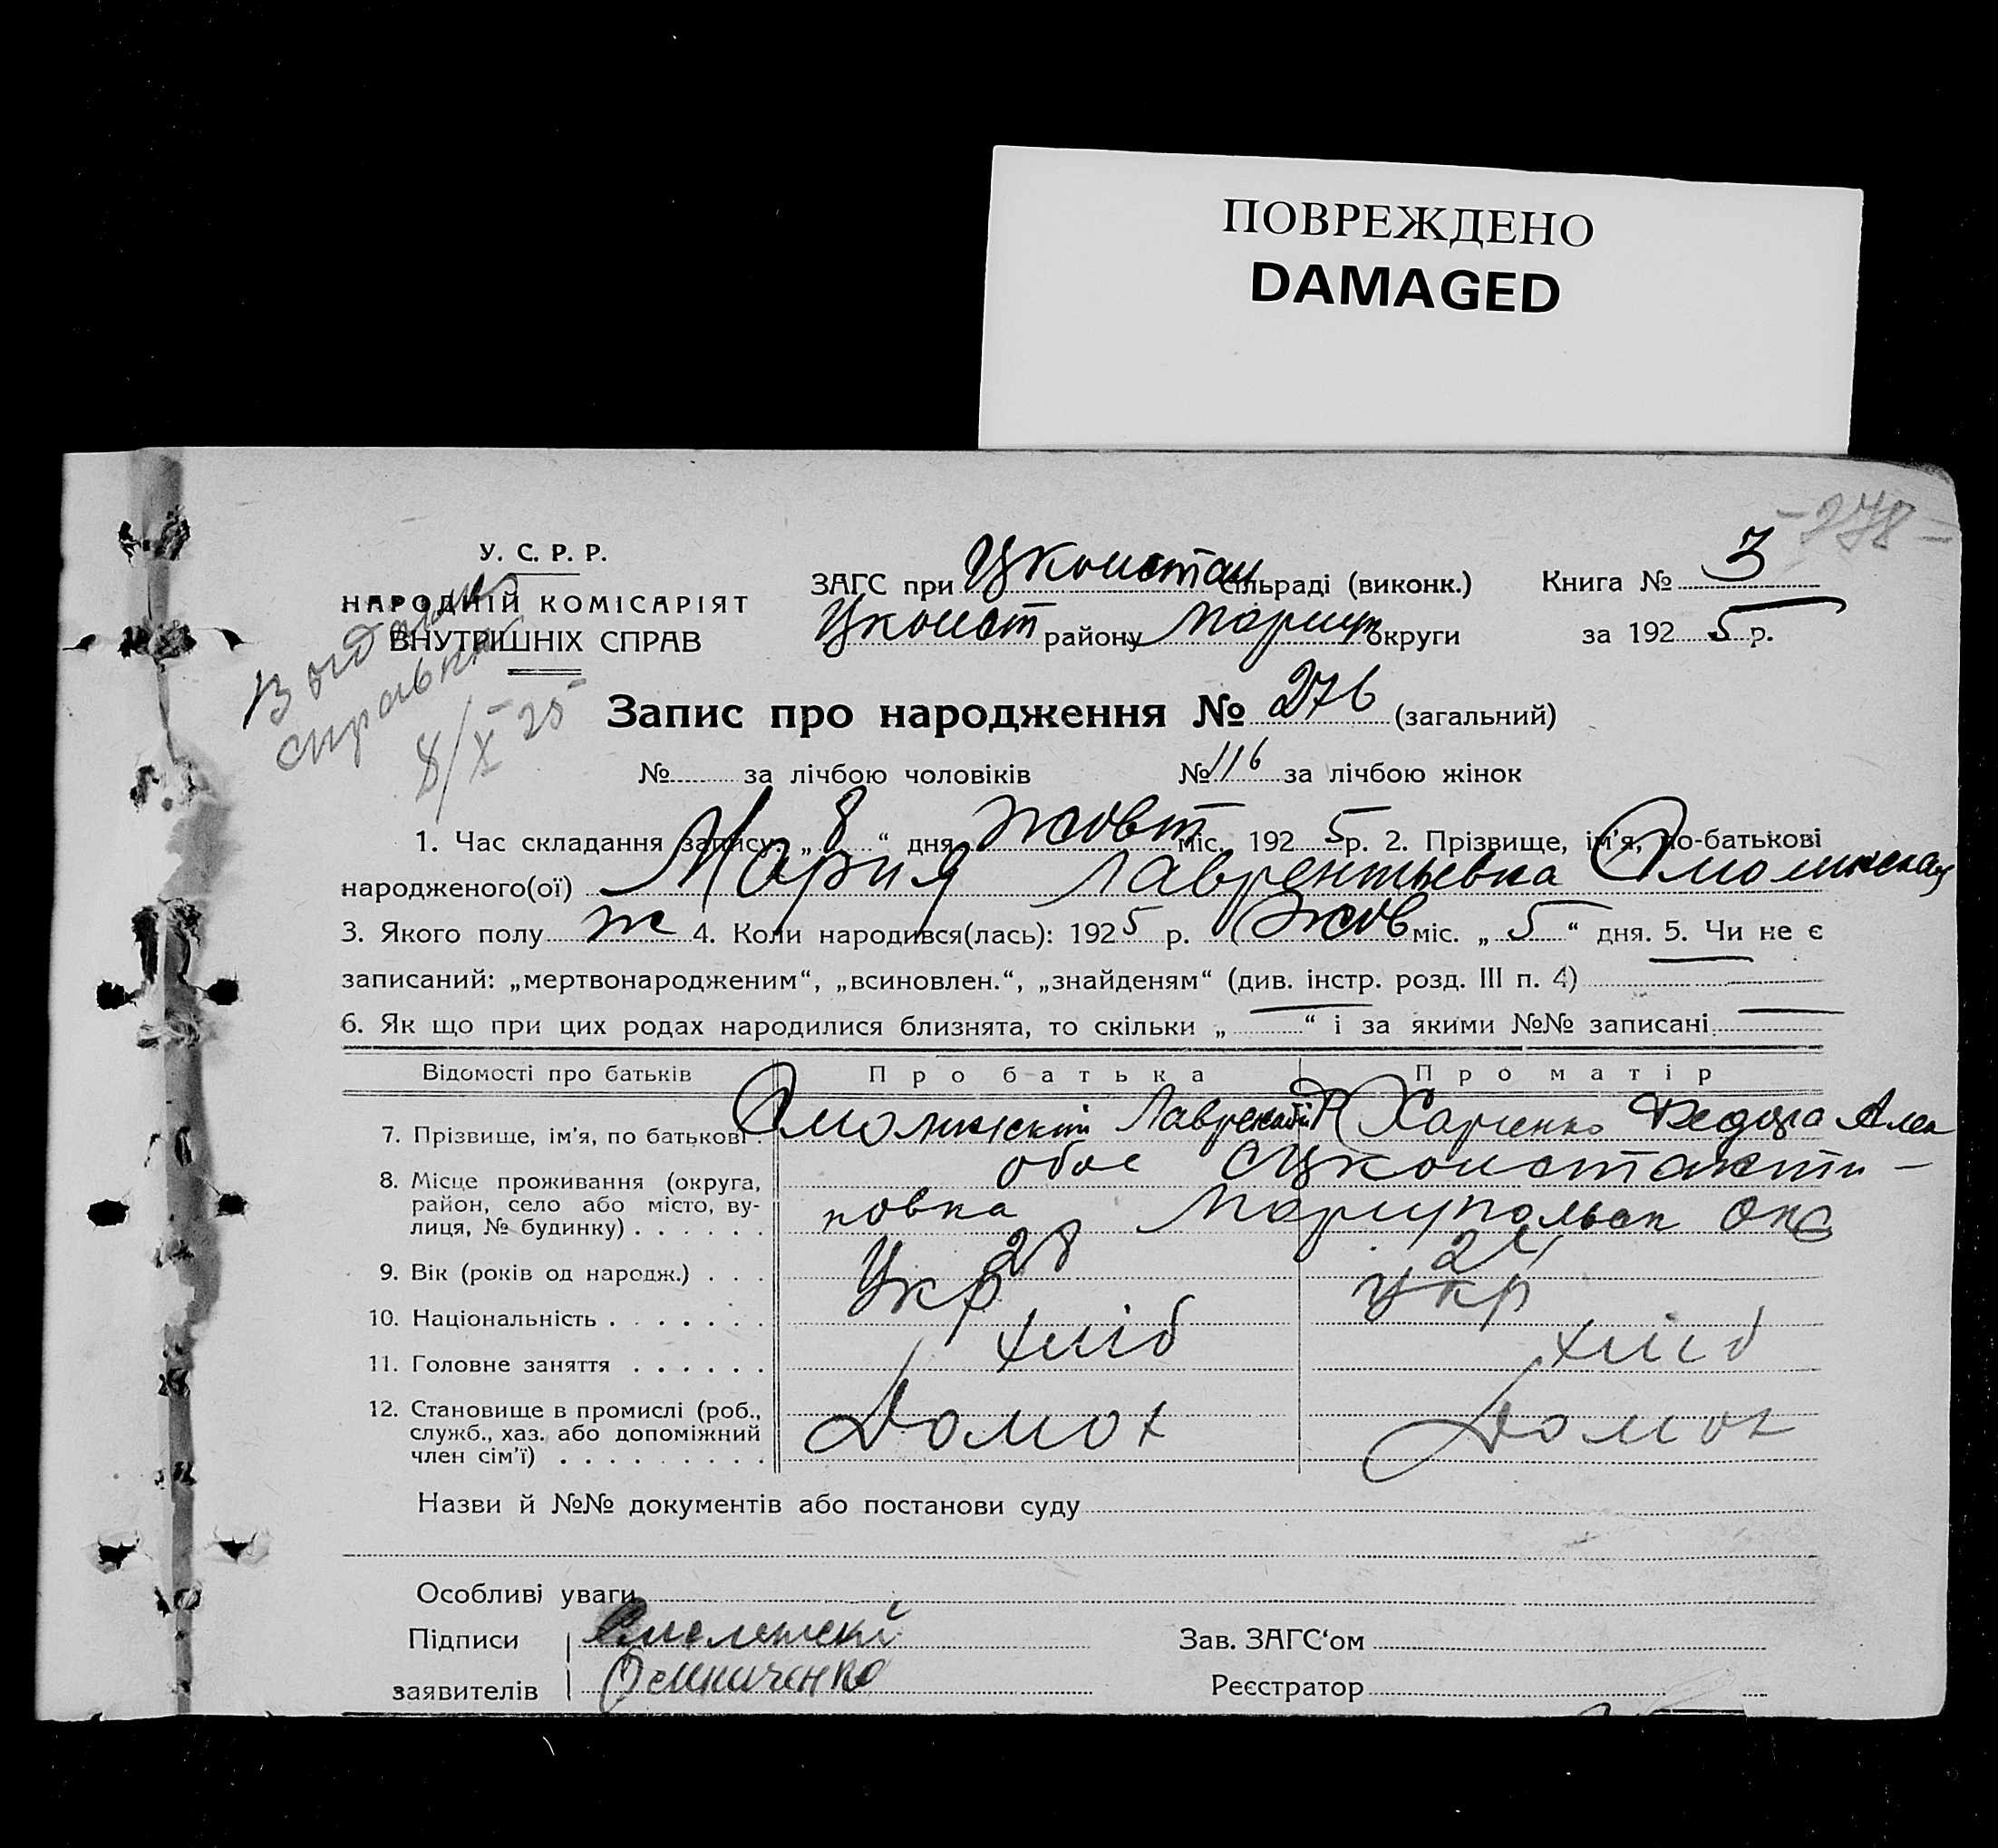 ПОВРЕЖДЕНО
DAMAGED
У. С. Р. Р.
НАРОДНІЙ КОМІСАРІЯТ
ВНУТРІШНІХ СПРАВ
8/X 25
ЗАГС при Цконстан сільраді (виконк.) Книга № 3
Цконст району Мариуп округи за 192 5 р.
-278-
Запис про народження № 276 (загальний)
№ за лічбою чоловіків № 116 за лічбою жінок
1. Час складання запису: „ 8 “ дня Жовт міс. 192 5 р. 2. Прізвище, ім'я, по-батькові
народженого(ої) Мария Лаврентьевна Смолинская
3. Якого полу ж 4. Коли народився(лась): 192 5 р. Жов міс. „ 5 “ дня. 5. Чи не є
записаний: „мертвонародженим“, „всиновлен.“, „знайденям“ (див. інстр. розд. III п. 4)
6. Як що при цих родах народилися близнята, то скільки „ — “ і за якими №№ записані —
Відомості про батьків Про батька Про матір
7. Прізвище, ім'я, по батькові . Смолинский Харченко Алек
8. Місце проживання (округа, обое Цконстанти-
район, село або місто, ву- новка Мариупольск Окр
лиця, № будинку) . . . . . .
9. Вік (років од народж.) . . . 28 24
10. Національність . . . . . . . Укр укр
11. Головне заняття . . . . . . хліб хліб
12. Становище в промислі (роб., Домох Домох
служб., хаз. або допоміжний
член сім'ї) . . . . . . . . .
Назви й №№ документів або постанови суду
Особливі уваги
Підписи Зав. ЗАГС'ом
заявителів Реєстратор